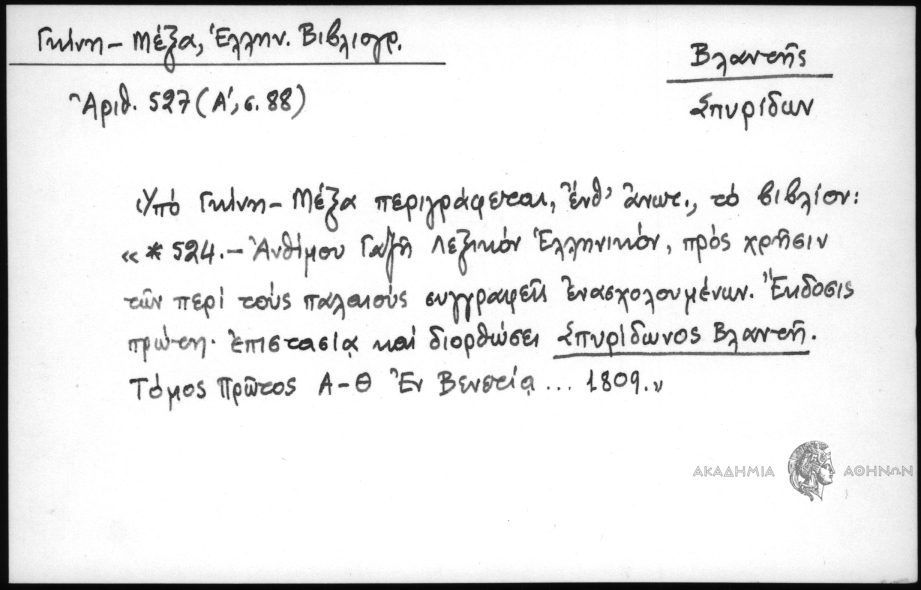 Γκίνη – Μέξα, Ἑλλην. Βιβλιογρ.
Βλαντῆς
Σπυρίδων
Ἀριθ. 527 (Α΄, σ. 88)
Ὑπό Γκίνη – Μέξα περιγράφεται, ἔνθ' ἄνωτ., τό βιβλίον:
« * 524. – Ἀνθίμου Γαζῆ Λεξικόν Ἑλληνικόν, πρός χρῆσιν
τῶν περί τούς παλαιούς συγγραφεῖς ἐνασχολουμένων. Ἔκδοσις
πρώτη· ἐπιστασίᾳ καί διορθώσει Σπυρίδωνος Βλαντῆ.
Τόμος Πρῶτος Α – Θ Ἐν Βενετίᾳ ... 1809.»
ΑΚΑΔΗΜΙΑ ΑΘΗΝΩΝ